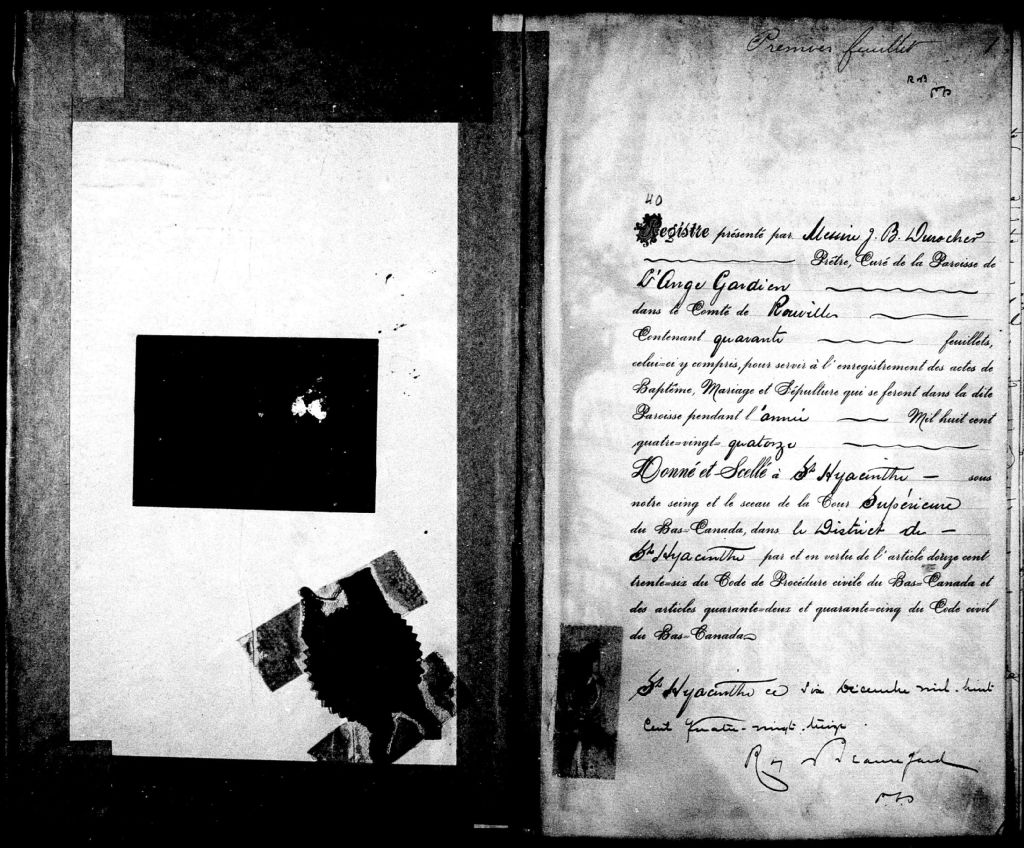 Premier feuillet 1
R B
P.S
40
Registre présenté par Messire J. B. Durocher
Prêtre, Curé de la Paroisse de
L'Ange Gardien
dans le Comté de Rouville
Contenant quarante feuillets,
celui-ci y compris, pour servir à l'enregistrement des actes de
Baptême, Mariage et Sépulture qui se feront dans la dite
Paroisse pendant l'année Mil huit cent
quatre=vingt=quatorze
Donné et Scellé à St Hyacinthe — sous
notre seing et le sceau de la Cour Supérieure
du Bas=Canada, dans le District de —
St Hyacinthe par et en vertu de l'article douze cent
trente=six du Code de Procédure civile du Bas=Canada et
des articles quarante=deux et quarante=cinq du Code civil
du Bas=Canada
St Hyacinthe ce six Décembre mil-huit
cent quatre-vingt-treize
Roy & Beauregard